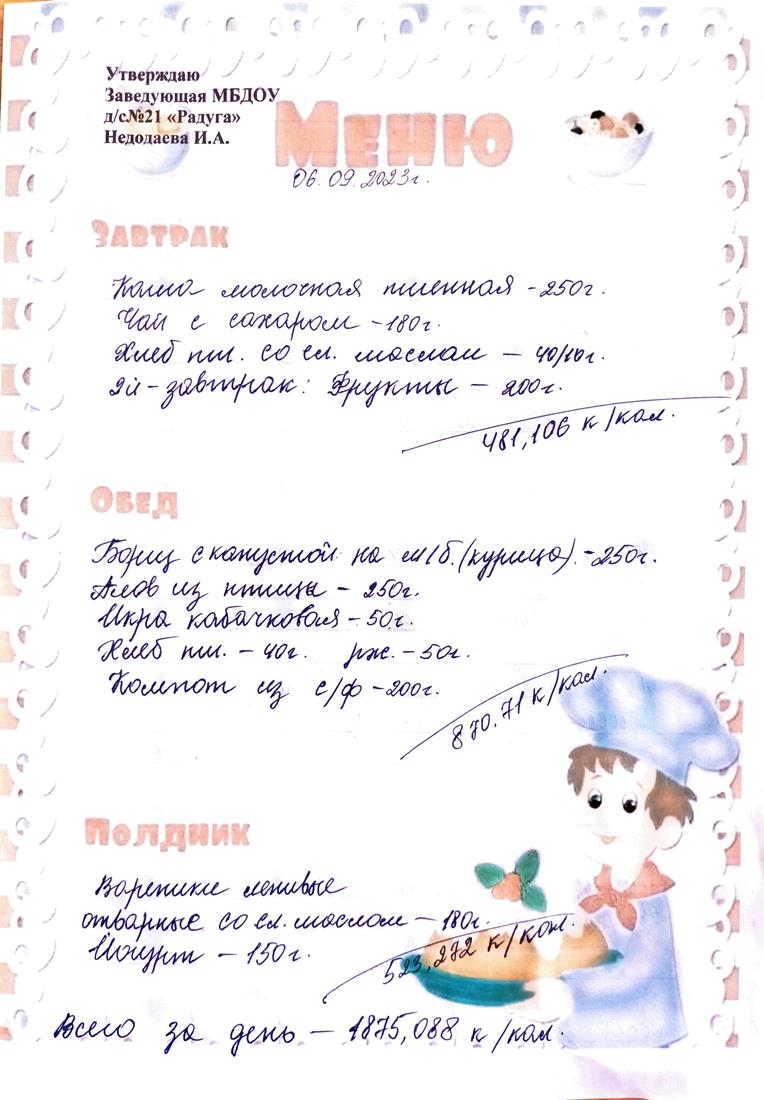 Утверждаю
Заведующая МБДОУ
д/с№21 «Радуга»
Недодаева И.А.
Меню
06.09.2023г.
Завтрак
Каша молочная пшенная - 250г.
Чай с сахаром - 180г.
Хлеб пш. со сл. маслом - 40/10г.
2й - завтрак: Фрукты - 200г.
481,106 к/кал.
Обед
Борщ с капустой на м/б.(курица). - 250г.
Плов из птицы - 250г.
Икра кабачковая - 50г.
Хлеб пш. - 40г. рж. - 50г.
Компот из с/ф - 200г.
870.71 к/кал.
Полдник
Вареники ленивые
отварные со сл. маслом - 180г.
Йогурт - 150г.
523,272 к/кал.
Всего за день - 1875,088 к/кал.